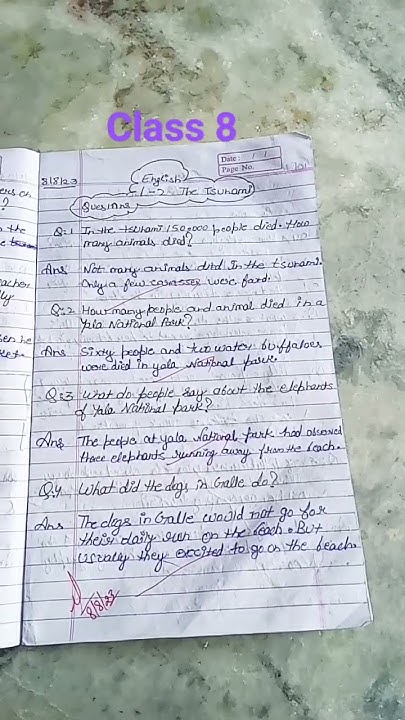 Class 8
Date : / /
Page No.
8/8/23
English
L-2 The Tsunami
Quesions
Q:1 In the tsunami 150,000 people died. How
many animals died?
Ans Not many animals died In the tsunami.
Only a few were
Q:2 How many people and animal died in a
Yala National Park?
Ans Sixty people and two water buffaloes
were died in yala National park.
Q:3 What do people say about the elephants
of Yala National park?
Ans The people at yala National park had observed
three elephants running away from the beach.
Q.4 What did the dogs in Galle do?
Ans The dogs in Galle would not go for
their daily run on the beach. But
usually they excited to go on the beach.
8/8/23